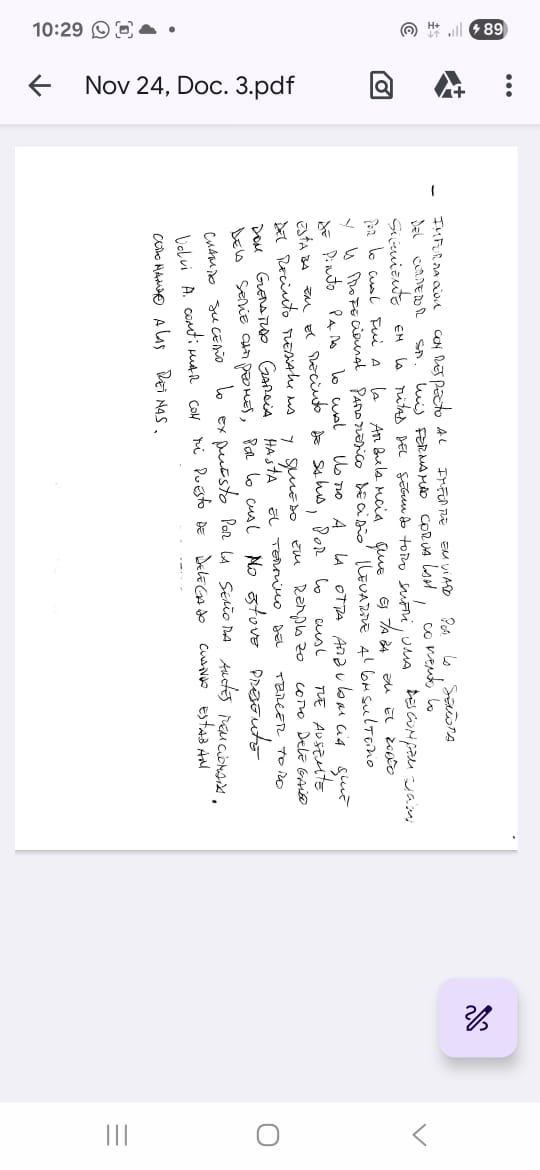 10:29
H+
89
Nov 24, Doc. 3.pdf
- INFORMACION CON RESPECTO AL INFORME ENVIADO POR LA SEÑORA
DEL CORREDOR SR. LUIS FERNANDO CORVALAN, COMENTO LO
SIGUIENTE EN LA MITAD DEL SEGUNDO TORO SUFRI UNA
POR LO CUAL FUI A LA AMBULANCIA QUE ESTABA EN EL RODEO
Y LA PROFECIONAL PARAMEDICO DECIDIO LLEVARME AL CONSULTORIO
DE PINTO PARA LO CUAL LLAMO A LA OTRA AMBULANCIA QUE
ESTABA EN EL RECINTO DE SALUD, POR LO CUAL ME AUSENTE
DEL RECINTO Y QUEDO EN REMPLAZO COMO DELEGADO
DON GERARDO GARCIA HASTA EL TERMINO DEL TERCER TORO
DELA SERIE CAMPEONES, POR LO CUAL NO ESTUVE PRESENTE
CUANDO SUCEDIO LO EXPUESTO POR LA SEÑORA ANTES MENCIONADA.
VOLVI A CONTINUAR CON MI PUESTO DE DELEGADO CUANDO ESTABAN
CORONANDO A LAS REINAS.